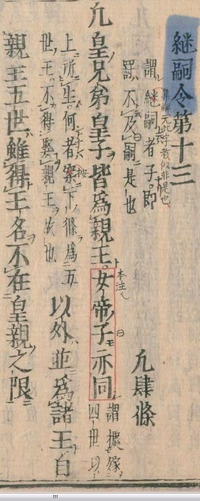 継嗣令第十三
謂継嗣者子即
不及嗣是也
凡肆條
凡皇兄弟皇子皆爲親王女帝子亦同
本注
謂據嫁
四世以
上所生何者案下條爲五
世王不得娶親王故也
以外並爲諸王自
親王五世雖得王名不在皇親之限